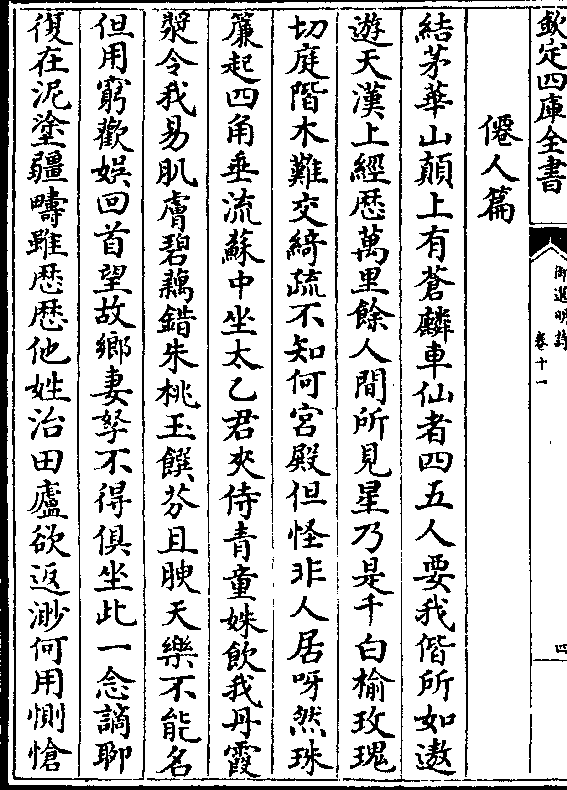 欽定四庫全書
御選明詩
卷十一
四
僊人篇
結茅華山顛上有蒼麟車仙者四五人要我偕所如遨
遊天漢上經厯萬里餘人間所見星乃是千白榆玫瑰
切庭階木難交綺疏不知何宮殿但怪非人居呀然珠
簾起四角垂流蘇中坐太乙君夾侍青童姝飲我丹霞
漿令我易肌膚碧藕錯朱桃玉饌芬且腴天樂不能名
但用窮歡娛回首望故鄉妻孥不得俱坐此一念謫聊
復在泥塗疆疇雖厯厯他姓治田廬欲返渺何用惻愴